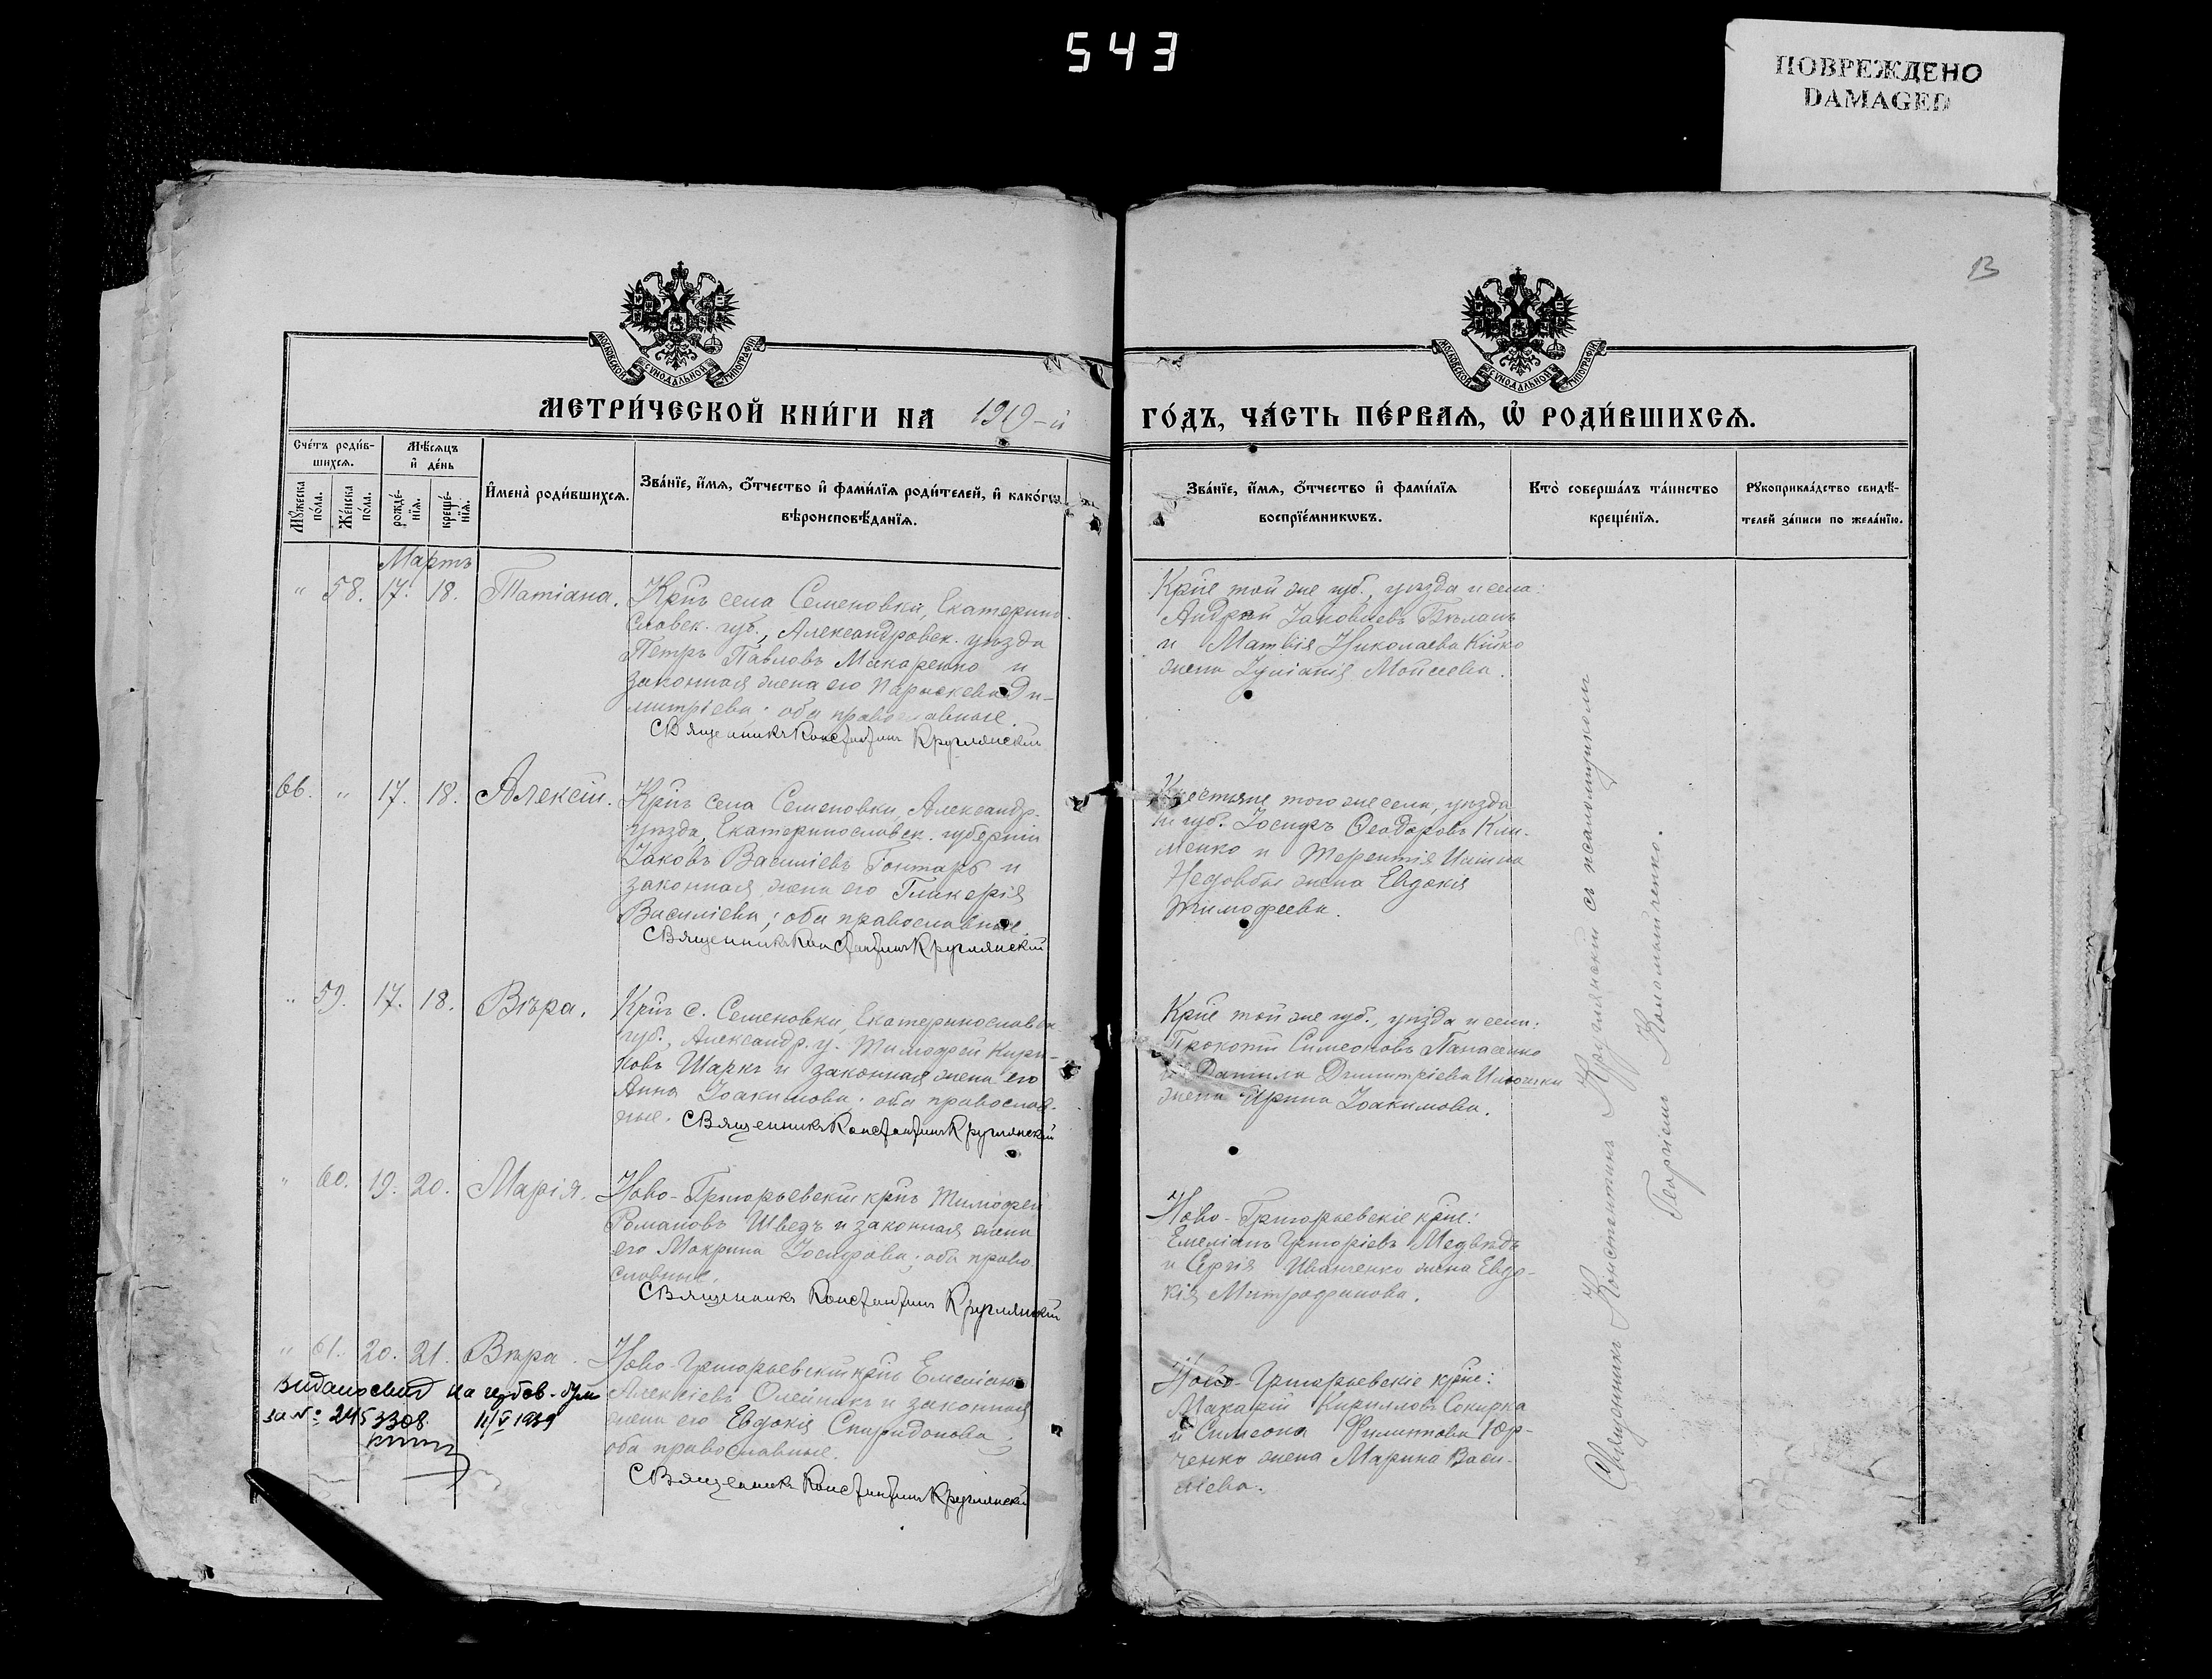 543
ПОВРЕЖДЕНО
DAMAGED
13
МОСКОВСКОЙ СѴНОДАЛЬНОЙ ТИПОГРАФІИ
МОСКОВСКОЙ СѴНОДАЛЬНОЙ ТИПОГРАФІИ
МЕТРИ́ЧЕСКОЙ КНИ́ГИ НА 1919-й
ГО́ДЪ, ЧА́СТЬ ПЕ́РВАѦ, Ѡ҆ РОДИ́ВШИХСѦ.
Сче́тъ роди́в-
шихсѧ.
Мѣ́сѧцъ
и҆ де́нь
Мꙋ́жеска
по́ла.
Же́нска
по́ла.
рожде́-
нїѧ.
креще́-
нїѧ.
И҆мена̀ роди́вшихсѧ.
Зва́нїе, и҆́мѧ, ѻ҆́тчество и҆ фами́лїѧ роди́телей, и҆ како́гѡ
вѣроисповѣ́данїѧ.
Зва́нїе, и҆́мѧ, ѻ҆́тчество и҆ фами́лїѧ
воспрїе́мникѡвъ.
Кто̀ соверша́лъ та́инство
креще́нїѧ.
Рꙋкоприкла́дство свидѣ́-
телей за́писи по жела́нїю.
Мартъ
" 58. 17. 18. Татіана.
Крнъ села Семеновки, Екатерино-
славск. губ., Александровск. уѣзда
Петръ Павловъ Макаренко и
законная жена его Параскева Ди-
митріева; оба православные.
Священникъ Константинъ Круглянскій
Кріе той же губ., уѣзда и села:
Андрей Іаковлевъ Бѣланъ
и Матвія Николаева Кійко
жена Іуліанія Мойсеева.
66. " 17. 18. Алексій.
Крнъ села Семеновки, Александр.
уѣзда, Екатеринославск. губерніи
Іаковъ Василіевъ Гонтарь и
законная жена его Гликерія
Василіева; оба православные.
Священникъ Константинъ Круглянскій
Крестьяне того же села, уѣзда
и губ. Іосифъ Ѳеодоровъ Кли-
менко и Терентія
жена Евдокія
Тимофеева.
" 59. 17. 18. Вѣра.
Крнъ с. Семеновки, Екатеринославск.
губ., Александр. у. Тимофей Кири-
ковъ Шаркъ и законная жена его
Анна Іоакимова; оба православ-
ные. Священникъ Константинъ Круглянскій
Кріе той же губ., уѣзда и села:
Прокопій Симеоновъ Панасенко
и Даніила Димитріева
жена Ирина Іоакимова.
" 60. 19. 20. Марія.
Ново-Григорьевскій крнъ Тимофей
Романовъ Шведъ и законная жена
его Макрина Іосифова; оба право-
славные.
Священникъ Константинъ Круглянскій
Ново-Григорьевскіе кріе:
Емеліанъ Григоріевъ Медвѣдь
и Сергія Иванченко жена Евдо-
кія Митрофанова.
" 61. 20. 21. Вѣра.
Ново-Григорьевскій крнъ Емеліанъ
Алексіевъ Олейникъ и законная
жена его Евдокія Спиридонова;
оба православные.
Священникъ Константинъ Круглянскій
Ново-Григорьевскіе кріе:
Макарій Кирилловъ Сокирка
и Симеона Филиппова Юр-
ченко жена Марина Васи-
ліева.
за № 245 3308. 11/V 1939
Священникъ Константинъ Круглянскій съ псаломщикомъ
Георгіемъ